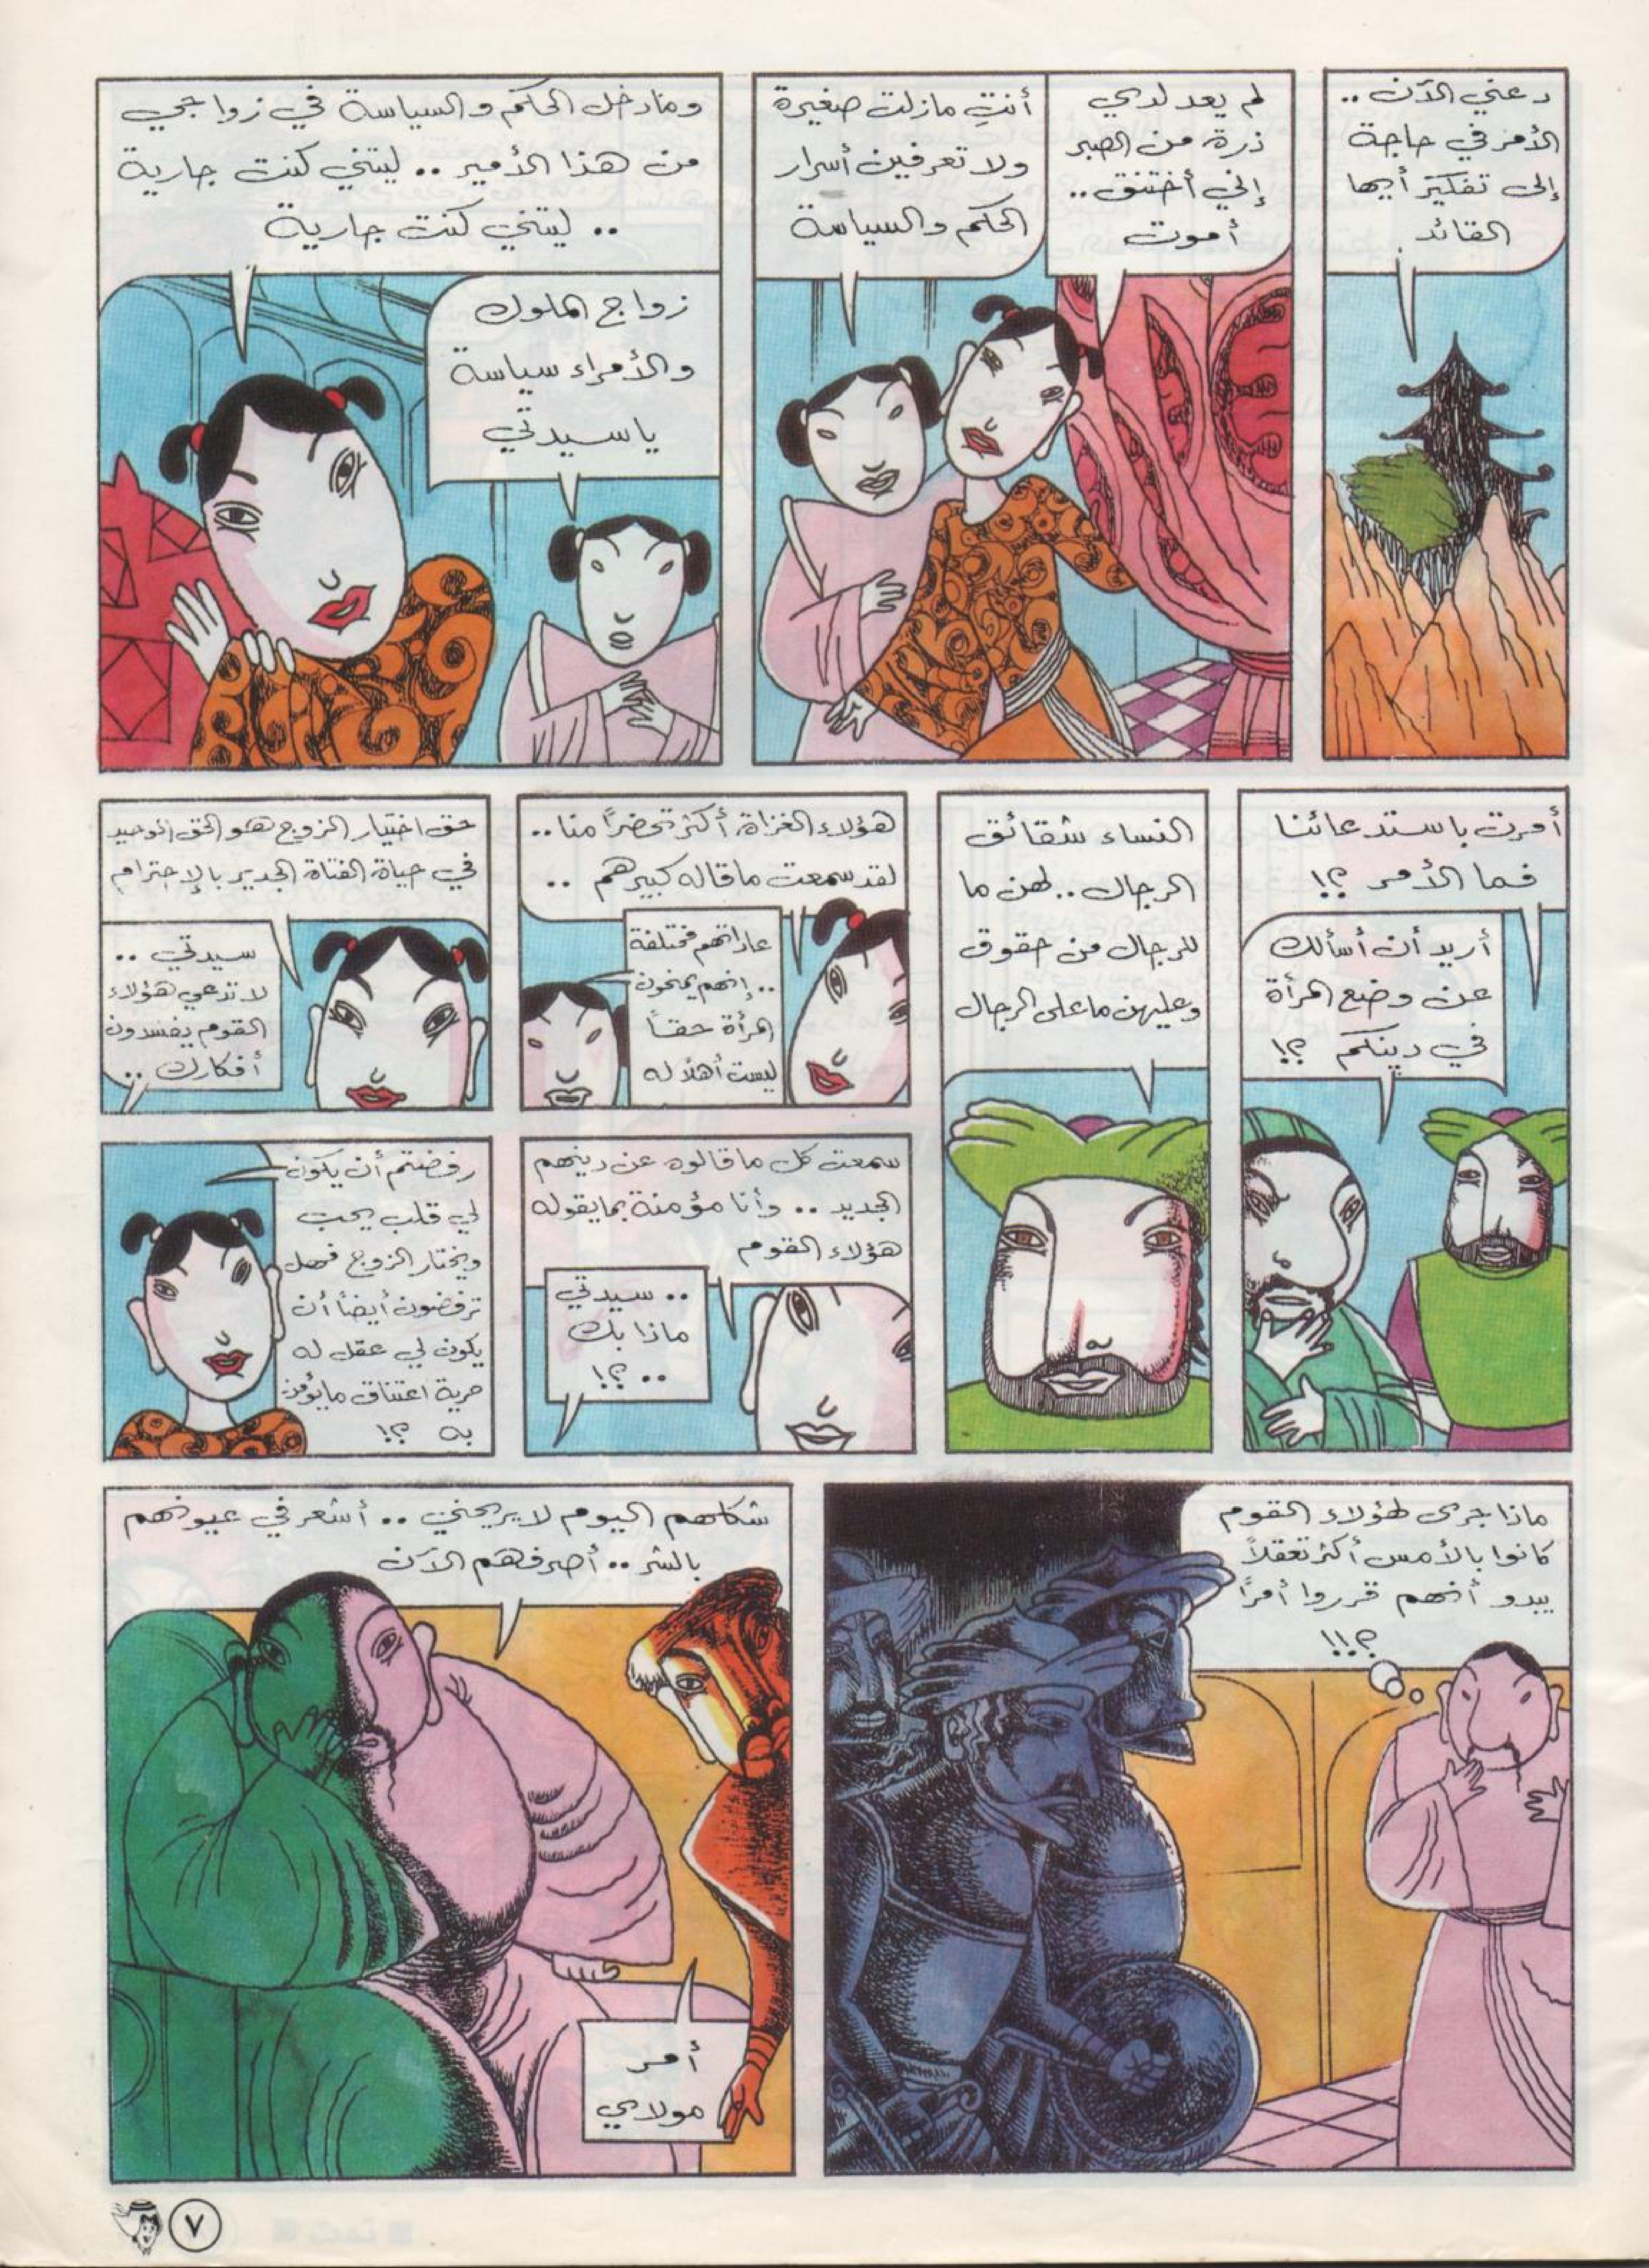 دعني الآن ..
الأمر في حاجة
إلى تفكير أيها
القائد .
لم يعد لدي
ذرة من الصبر
إني أختنق ..
أموت
أنتِ مازلت صغيرة
ولا تعرفين أسرار
الحكم والسياسة
ومادخل الحكم والسياسة في زواجي
من هذا الأمير .. ليتني كنت جارية
.. ليتني كنت جارية
زواج الملوك
والأمراء سياسة
ياسيدتي
أمرت باستدعائنا
فما الأمر ؟!
أريد أن أسألك
عن وضع المرأة
في دينكم ؟!
النساء شقائق
الرجال .. لهن ما
للرجال من حقوق
وعليهن ماعلى الرجال
هؤلاء الغزاة أكثر تحضراً منا ..
لقد سمعت ماقاله كبيرهم ..
عاداتهم مختلفة
.. إنهم يمنحون
المرأة حقاً
ليست أهلاً له
حق اختيار الزوج هو الحق الوحيد
في حياة الفتاة الجدير بالإحترام
سيدتي ..
لا تدعي هؤلاء
القوم يفسدون
أفكارك ..
سمعت كل ماقالوه عن دينهم
الجديد .. وأنا مؤمنة بمايقوله
هؤلاء القوم
.. سيدتي
ماذا بك
.. ؟!
رفضتم أن يكون
لي قلب يحب
ويختار الزوج فهل
ترفضون أيضاً أن
يكون لي عقل له
حرية اعتناق مايؤمن
به ؟!
ماذا جرى لهؤلاء القوم
كانوا بالأمس أكثر تعقلاً
يبدو أنهم قرروا أمراً
؟!!
شكلهم اليوم لا يريحني .. أشعر في عيونهم
بالشر .. أصرفهم الآن
أمر
مولاي
٧